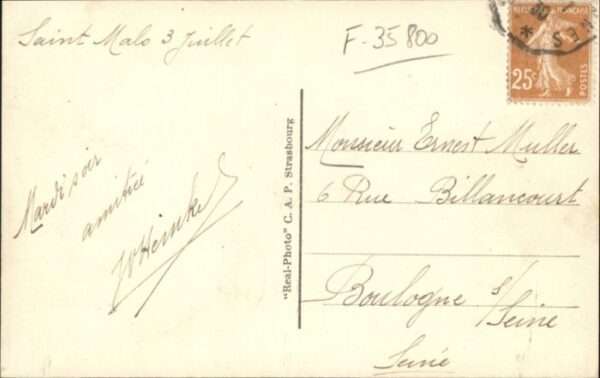 Saint Malo 3 Juillet
F-35800
Mardi soir
amitié
"Real-Photo" C. A. P. Strasbourg
25c
POSTES
Monsieur Ernest Muller
6 Rue Billancourt
Boulogne s/Seine
Seine